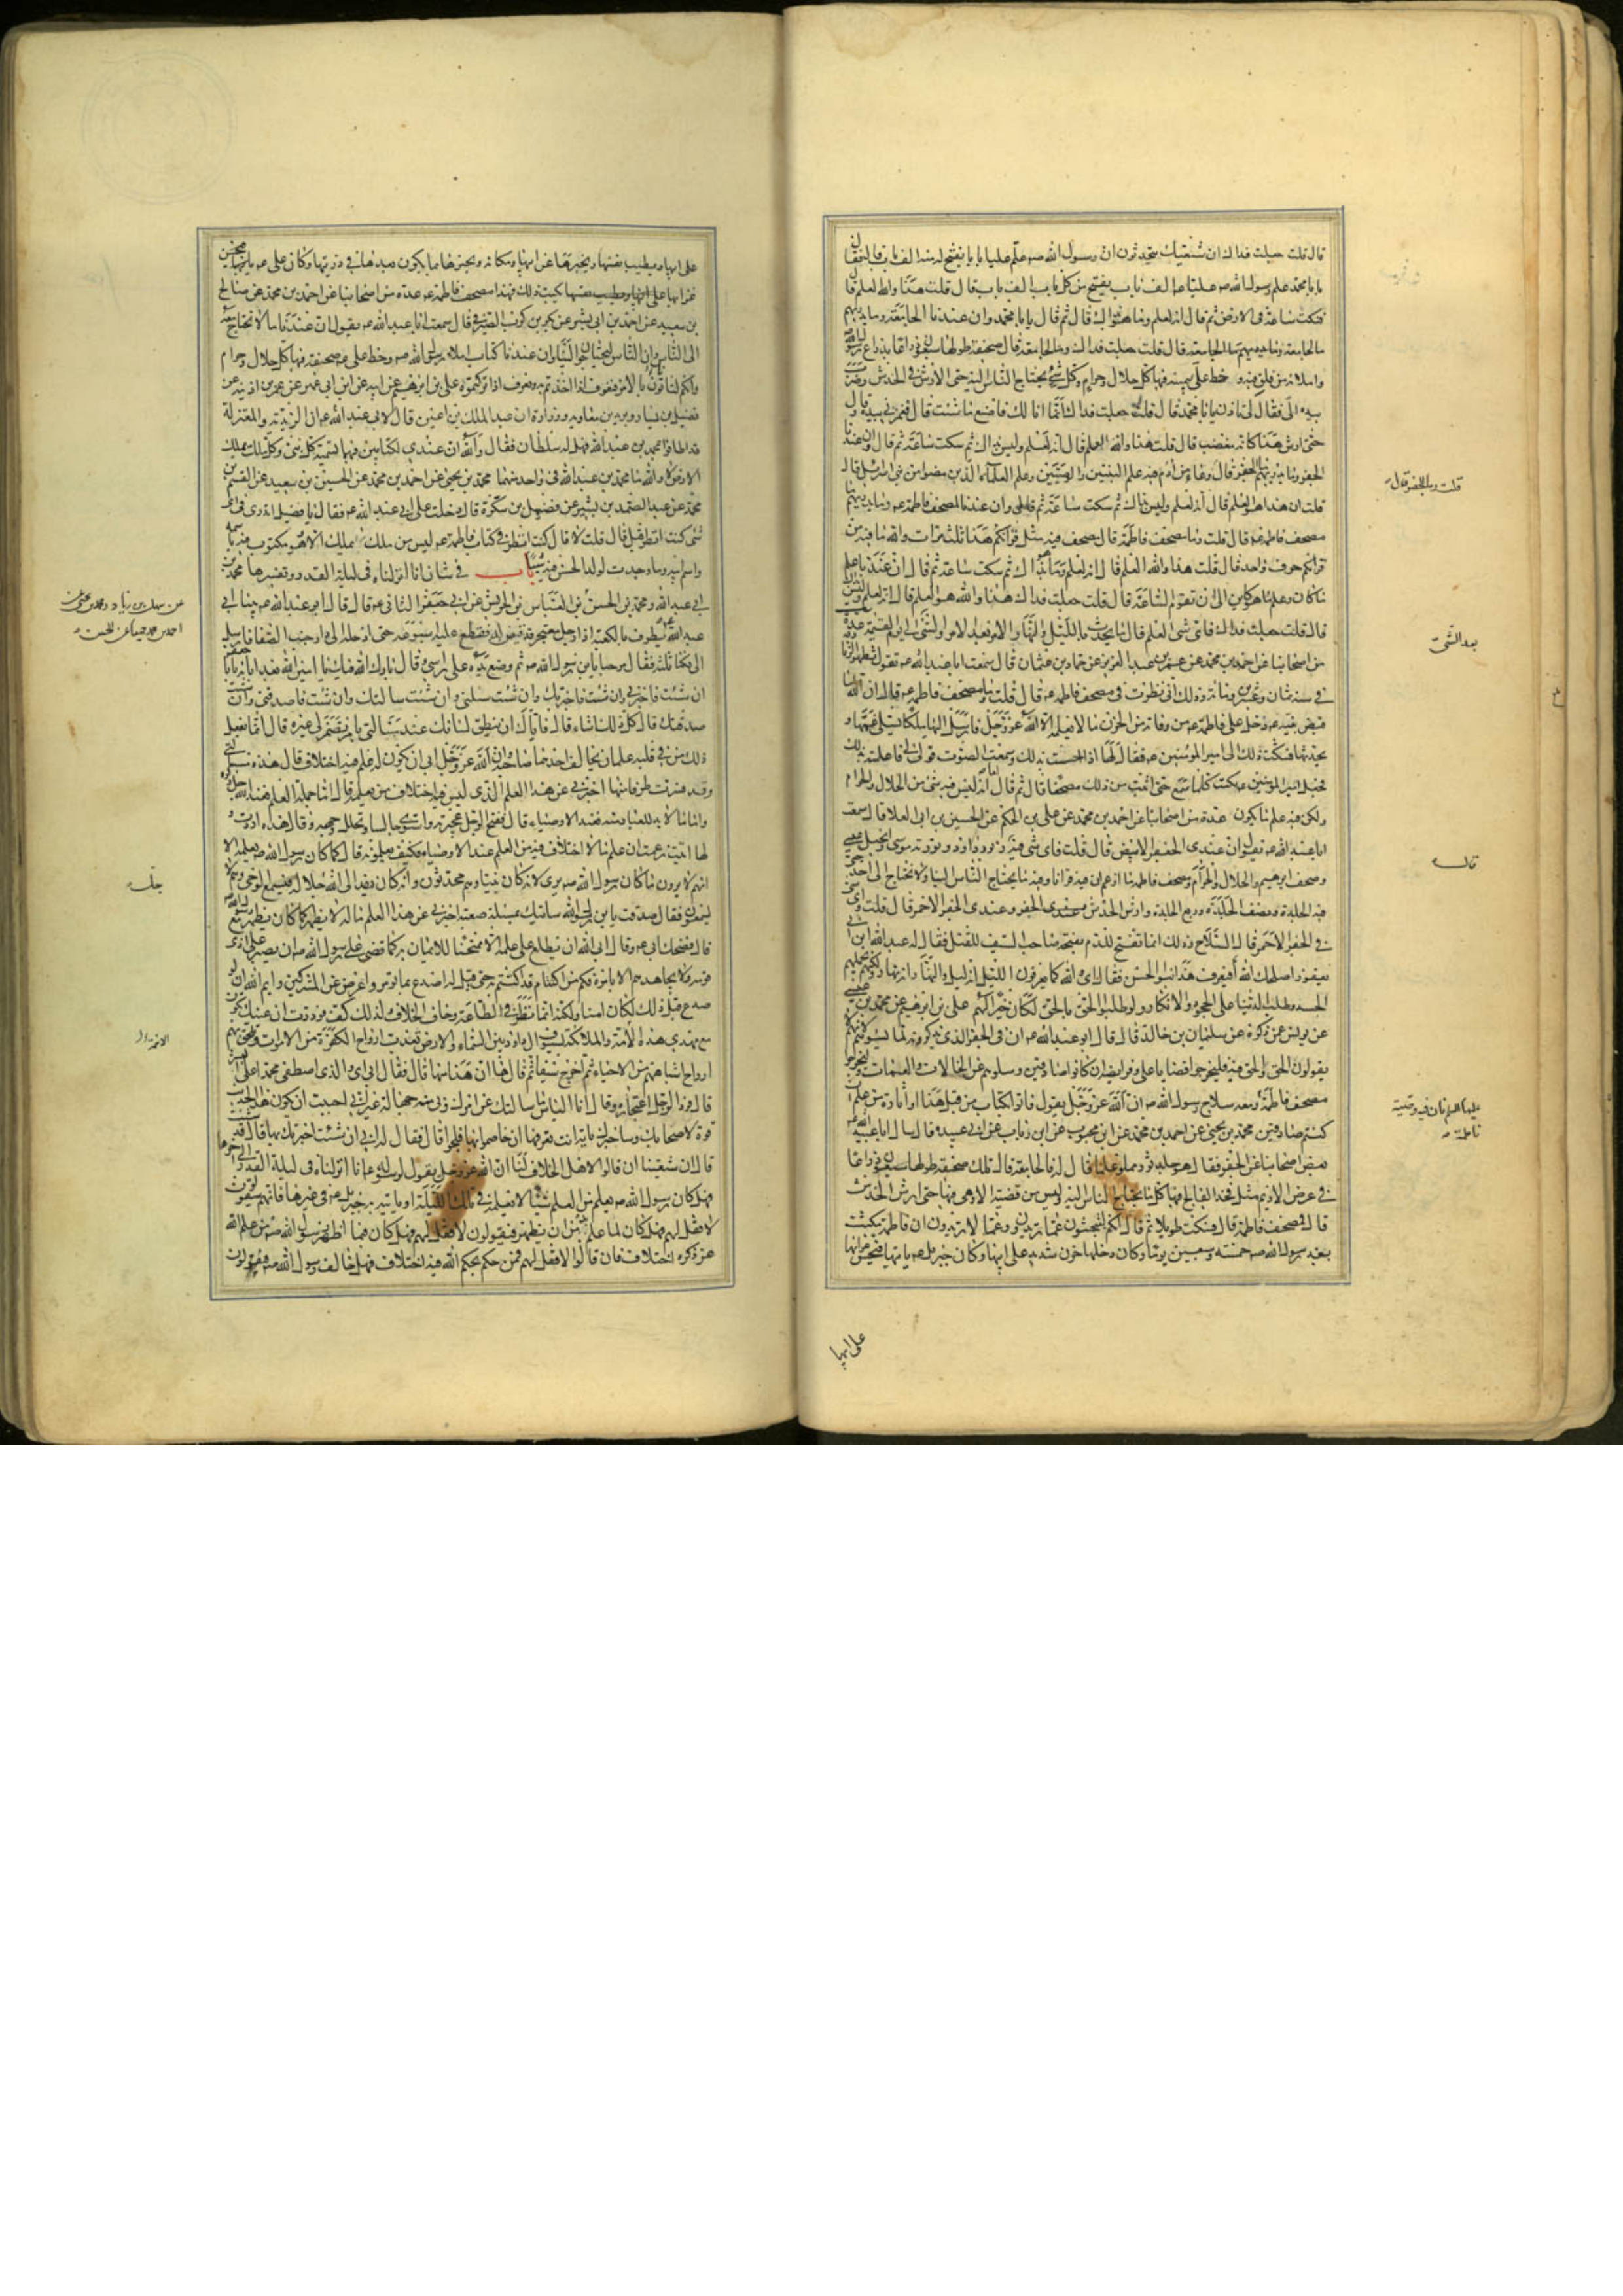 قال قلت جعلت فداك ان شيعتك يتحدثون ان رسول الله صه علم عليا بابا يفتح له منه الف باب قال فقال
يا با محمد علم رسول الله صه عليا عه الف باب يفتح من كل باب الف باب قال قلت هذا والله العلم قال
فنكت ساعة في الارض ثم قال انه لعلم وما هو بذاك قال ثم قال يا با محمد وان عندنا الجامعة وما يدريهم
ما الجامعة قال قلت جعلت فداك وما الجامعة قال صحيفة طولها سبعون ذراعا بذراع رسول الله
واملائه من فلق فيه وخط علي بيمينه فيها كل حلال وحرام وكل شئ يحتاج الناس اليه حتى الارش في الخدش وضرب
بيده الى فقال لي تاذن يا با محمد قال قلت جعلت فداك انما انا لك فاصنع ما شئت قال فغمزني بيده وقال
حتى ارش هذا كانه مغضب قال قلت هذا والله العلم قال انه لعلم وليس بذاك ثم سكت ساعة ثم قال وان عندنا
الجفر وما يدريهم ما الجفر قال وعاء من ادم فيه علم النبيين والوصيين وعلم العلماء الذين مضوا من بني اسرائيل قال
قلت ان هذا هو العلم قال انه لعلم وليس بذاك ثم سكت ساعة ثم قال وان عندنا لمصحف فاطمة عه وما يدريهم ما
مصحف فاطمة عه قال قلت وما مصحف فاطمة قال مصحف فيه مثل قرانكم هذا ثلث مرات والله ما فيه من
قرانكم حرف واحد قال قلت هذا والله العلم قال انه لعلم وما هو بذاك ثم سكت ساعة ثم قال ان عندنا علم
ما كان وعلم ما هو كاين الى ان تقوم الساعة قال قلت جعلت فداك هذا والله هو العلم قال انه لعلم وليس بذاك
قال قلت جعلت فداك فاي شئ العلم قال ما يحدث بالليل والنهار الامر بعد الامر والشئ الى يوم القيمة عدة
من اصحابنا عن احمد بن محمد عن عمر بن عبد العزيز عن حماد بن عثمان قال سمعت ابا عبد الله عه يقول تظهر الزنادقة
في سنة ثمان وعشرين ومائة وذلك اني نظرت في مصحف فاطمة عه قال قلت وما مصحف فاطمة عه قال ان الله لما
قبض نبيه عه دخل على فاطمة عه من وفاته من الحزن ما لا يعلمه الا الله عز وجل فارسل اليها ملكا يسلي غمها و
يحدثها فشكت ذلك الى امير المؤمنين عه فقال لها اذا احسست بذلك وسمعت الصوت قولي لي فاعلمته بذلك
فجعل امير المؤمنين عه يكتب كلما سمع حتى اثبت من ذلك مصحفا قال ثم قال اما انه ليس فيه شئ من الحلال والحرام
ولكن فيه علم ما يكون عدة من اصحابنا عن احمد بن محمد عن علي بن الحكم عن الحسين بن ابي العلا قال سمعت
ابا عبد الله عه يقول ان عندي الجفر الابيض قال قلت فاي شئ فيه زبور داود وتورية موسى وانجيل عيسى
وصحف ابرهيم والحلال والحرام ومصحف فاطمة ما ازعم ان فيه قرانا وفيه ما يحتاج الناس الينا ولا نحتاج الى احد حتى
فيه الجلدة ونصف الجلدة وربع الجلدة وارش الخدش وعندي الجفر الاحمر قال قلت واي شئ
في الجفر الاحمر قال السلاح وذلك انما تفتح للدم يفتحه صاحب السيف للقتل فقال له عبد الله ابن ابي
يعفور اصلحك الله أفيعرف هذا بنو الحسن فقال اي والله كما يعرفون الليل انه ليل والنهار انه نهار ولكنهم يحملهم
الحسد وطلب الدنيا على الجحود والانكار ولو طلبوا الحق بالحق لكان خيرا لهم علي بن ابرهيم عن محمد بن عيسى
عن يونس عمن ذكره عن سليمان بن خالد قال قال ابو عبد الله عه ان في الجفر الذي يذكرونه لما يسوءهم لانهم لا
يقولون الحق والحق فيه فليخرجوا قضايا علي وفرايضه ان كانوا صادقين وسلوهم عن الخالات والعمات وليخرجوا
مصحف فاطمة ومعه سلاح رسول الله صه ان الله عز وجل يقول فاتوا بكتاب من قبل هذا او اثارة من علم ان
كنتم صادقين محمد بن يحيى عن احمد بن محمد عن ابن محبوب عن ابن رئاب عن ابي عبيدة قال سال ابا عبد الله عه
بعض اصحابنا عن الجفر فقال هو جلد ثور مملو علما قال له فالجامعة قال تلك صحيفة طولها سبعون ذراعا
في عرض الاديم مثل فخذ الفالج فيها كل ما يحتاج الناس اليه وليس من قضية الا وهي فيها حتى ارش الخدش
قال فمصحف فاطمة قال فسكت طويلا ثم قال انكم لتبحثون عما تريدون وعما لا تريدون ان فاطمة مكثت
بعد رسول الله صه خمسة وسبعين يوما وكان دخلها حزن شديد على ابيها وكان جبرئيل عه ياتيها فيحسن عزاءها
قلت وما الجفر قال
بعد الشئ
قال
على ابيها
على ابيها ويطيب نفسها ويخبرها عن ابيها ومكانه ويخبرها بما يكون بعدها في ذريتها وكان علي عه
عزاءها على ابيها ويطيب نفسها يكتب ذلك فهذا مصحف فاطمة عه عدة من اصحابنا عن احمد بن محمد عن صالح
بن سعيد عن احمد بن ابي بشر عن بكر بن كرب الصيرفي قال سمعت ابا عبد الله عه يقول ان عندنا ما لا نحتاج معه
الى الناس وان الناس ليحتاجون الينا وان عندنا كتابا املاء رسول الله صه وخط علي عه صحيفة فيها كل حلال وحرام
وانكم لتاتون بالامر فنعرف اذا اخذتم به ونعرف اذا تركتموه علي بن ابرهيم عن ابيه عن ابن ابي عمير عن عمر بن اذينة عن
فضيل بن يسار وبريد بن معاوية وزرارة ان عبد الملك بن اعين قال لابي عبد الله عه ان الزيدية والمعتزلة
قد اطافوا بمحمد بن عبد الله فهل له سلطان فقال والله ان عندي لكتابين فيهما تسمية كل نبي وكل ملك يملك
الارض لا والله ما محمد بن عبد الله في واحد منهما محمد بن يحيى عن احمد بن محمد عن الحسين بن سعيد عن القسم بن
محمد عن عبد الصمد بن بشير عن فضيل بن سكرة قال دخلت على ابي عبد الله عه فقال يا فضيل اتدري في اي
شئ كنت انظر قبل قال قلت لا قال كنت انظر في كتاب فاطمة عه ليس من ملك يملك الا وهو مكتوب فيه باسمه
واسم ابيه وما وجدت لولد الحسن فيه شيئا باب في شان انا انزلناه في ليلة القدر وتفسيرها محمد بن
ابي عبد الله ومحمد بن الحسن بن العباس بن الحريش عن ابي جعفر الثاني عه قال قال ابو عبد الله عه بينا ابي
عبد الله يطوف بالكعبة اذا رجل معتجر قد قيض له فقطع عليه اسبوعه حتى ادخله الى دار جنب الصفا فارسل
الى فكنا ثلثة فقال مرحبا يا بن رسول الله صه ثم وضع يده على راسي وقال بارك الله فيك يا امين الله بعد ابائه يا با جعفر
ان شئت فاخبرني وان شئت فاخبرتك وان شئت سلني وان شئت سالتك وان شئت فاصدقني وان شئت
صدقتك قال كل ذلك اشاء قال فاياك ان ينطق لسانك عند مسالتي بامر تضمر لي غيره قال انما يفعل
ذلك من في قلبه علمان يخالف احدهما صاحبه وان الله عز وجل ابى ان يكون له علم فيه اختلاف قال هذه مسئلتي
وقد فسرت طرفا منها اخبرني عن هذا العلم الذي ليس فيه اختلاف من يعلمه قال اما جملة العلم فعند الله جل ذكره
واما ما لا بد للعباد منه فعند الاوصياء قال ففتح الرجل عجيرته واستوى جالسا وتهلل وجهه وقال هذه اردت و
لها اتيت زعمت ان علم ما لا اختلاف فيه من العلم عند الاوصياء فكيف يعلمونه قال كما كان رسول الله صه يعلمه الا
انهم لا يرون ما كان رسول الله صه يرى لانه كان نبيا وهم محدثون وانه كان يفد الى الله جل جلاله فيسمع الوحي وهم لا
يسمعون فقال صدقت يا بن رسول الله سآتيك بمسئلة صعبة اخبرني عن هذا العلم ما له لا يظهر كما كان يظهر مع رسول الله
قال فضحك ابي عه وقال ابى الله ان يطلع على علمه الا ممتحنا للايمان به كما قضى على رسول الله صه ان يصبر على اذى
قومه ولا يجاهدهم الا بامره فكم من اكتتام قد اكتتم به حتى قيل له اصدع بما تؤمر واعرض عن المشركين وايم الله ان لو
صدع قبل ذلك لكان امنا ولكنه انما نظر في الطاعة وخاف الخلاف فلذلك كف فوددت ان عينك تكون
مع مهدي هذه الامة والملائكة بسيوف ال داود بين السماء والارض تعذب ارواح الكفرة من الاموات وتلحق بهم
ارواح اشباههم من الاحياء ثم اخرج سيفا ثم قال ها ان هذا منها قال فقال ابي اي والذي اصطفى محمدا على البشر
قال فرد الرجل اعتجاره وقال انا الياس ما سالتك عن امرك وبي منه جهالة غير اني احببت ان يكون هذا الحديث
قوة لاصحابك وساخبرك باية انت تعرفها ان خاصموا بها فلجوا قال فقال له ابي ان شئت اخبرتك بها قال قد شئت
قال ان شيعتنا ان قالوا لاهل الخلاف لنا ان الله عز وجل يقول لرسوله عه انا انزلناه في ليلة القدر الى اخرها
فهل كان رسول الله صه يعلم من العلم شيئا لا يعلمه في تلك الليلة او ياتيه به جبرئيل عه في غيرها فانهم سيقولون
لا فقل لهم فهل كان لما علم بد من ان يظهر فيقولون لا فقل لهم فهل كان فيما اظهر رسول الله صه من علم الله
عز ذكره اختلاف فان قالوا لا فقل لهم فمن حكم بحكم الله فيه اختلاف فهل خالف رسول الله صه فيقولون
جل